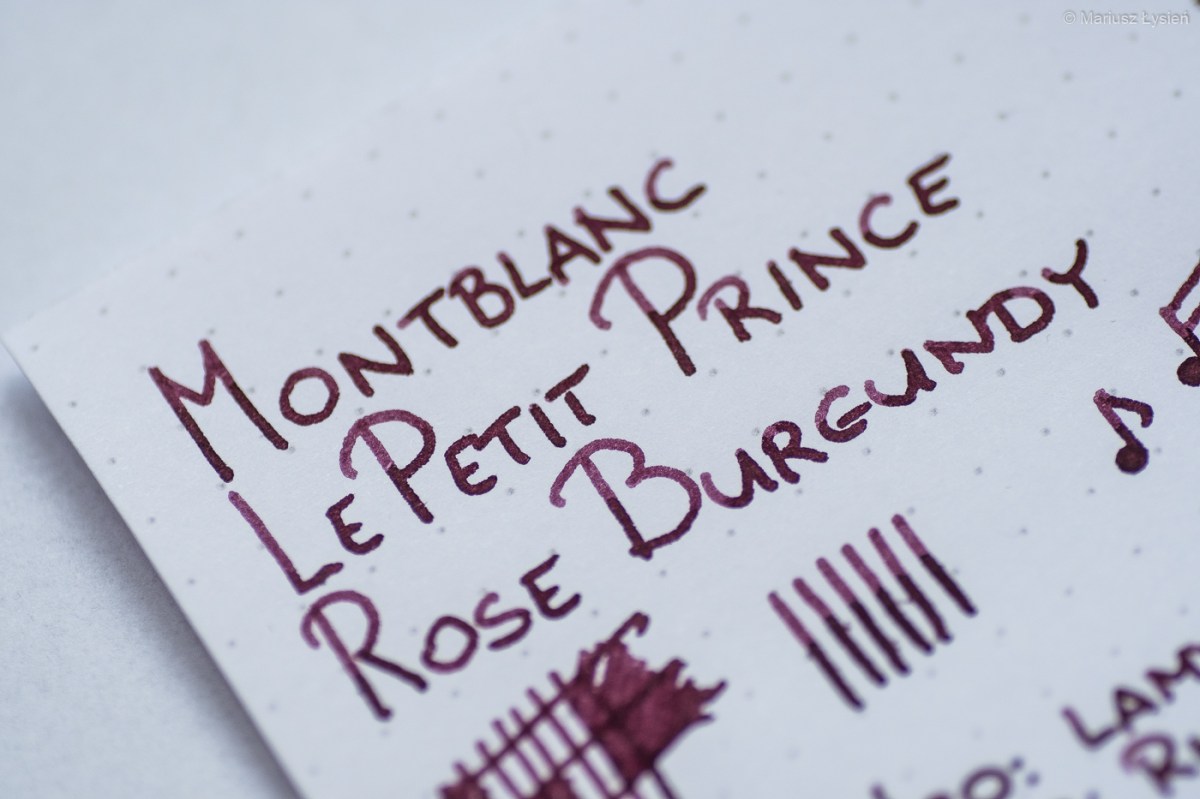 © Mariusz Łysień
MONTBLANC
LE PETIT PRINCE
ROSE BURGUNDY